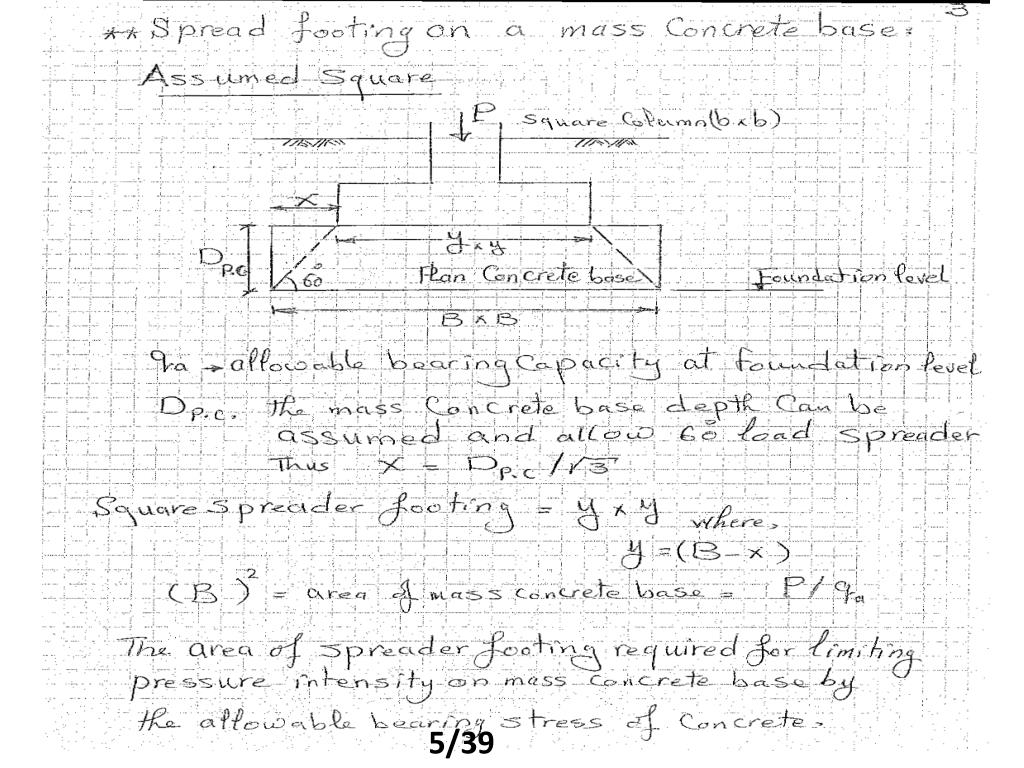 3
** Spread footing on a mass Concrete base:
Assumed Square
P Square Column (b x b)
x
y x y
Dp.c
60°
Plan Concrete base
Foundation level
B x B
qa → allowable bearing Capacity at foundation level
Dp.c. the mass Concrete base depth Can be
assumed and allow 60° load spreader
Thus x = Dp.c /√3
Square Spreader footing = y x y where,
y = (B - x)
(B)² = area of mass concrete base = P/qa
The area of spreader footing required for limiting
pressure intensity on mass concrete base by
the allowable bearing stress of Concrete.
5/39